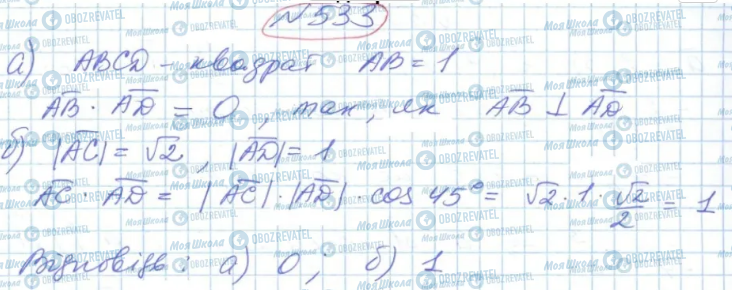 №533
а) ABCD – квадрат AB = 1
AB · AD = 0, так, як AB ⊥ AD
б) |AC| = √2, |AD| = 1
AC · AD = |AC| · |AD| · cos 45° = √2 · 1 · √2/2 = 1
Відповідь: а) 0; б) 1
Моя Школа OBOZREVATEL